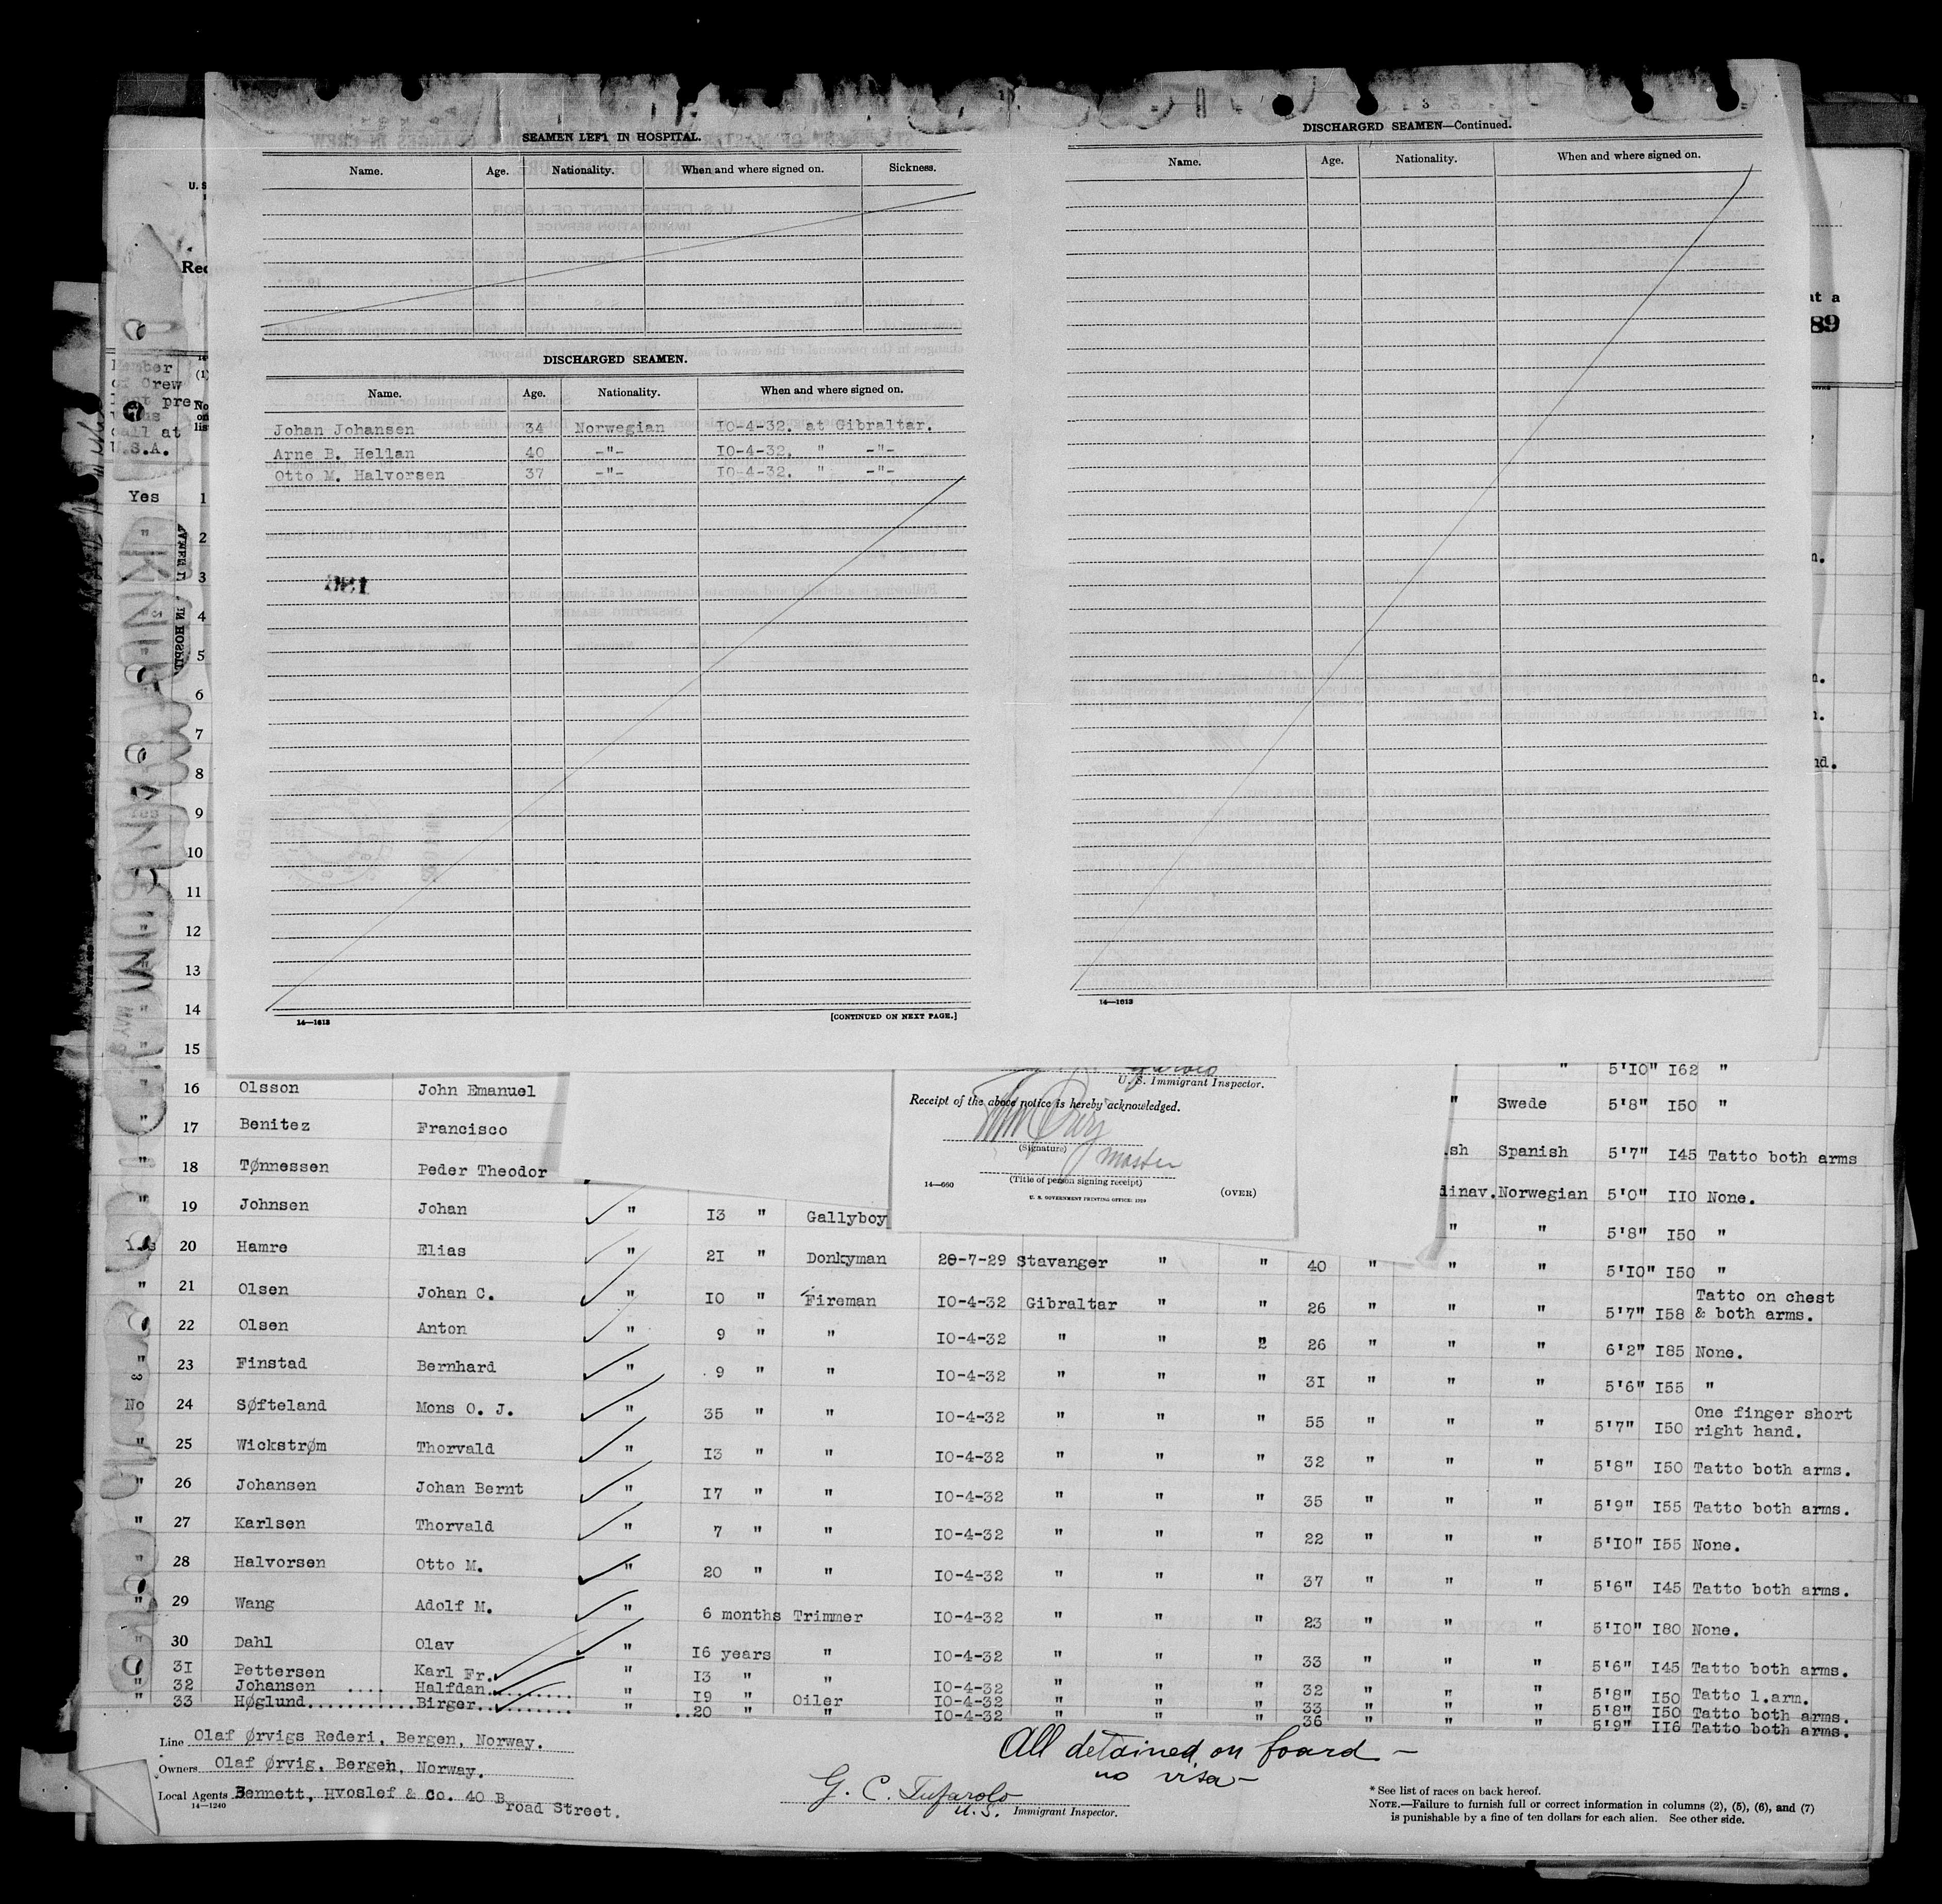 SEAMEN LEFT IN HOSPITAL.
Name. Age. Nationality. When and where signed on. Sickness.
DISCHARGED SEAMEN.
Name. Age. Nationality. When and where signed on.
Johan Johansen 34 Norwegian 10-4-32. at Gibraltar.
Arne B. Hellan 40 -"- 10-4-32. " -"-
Otto M. Halvorsen 37 -"- 10-4-32. " -"-
14—1613 [CONTINUED ON NEXT PAGE.]
3
DISCHARGED SEAMEN—Continued.
Name. Age. Nationality. When and where signed on.
14—1613
U. S
Rec
at a
89
Member
of Crew
last pre
vious
call at
U.S.A.
(1)
No
on
lis
Yes 1
" 2
3
4
5
6
7
8
Yes 9
10
11
12
13
14
15 " 5'10" 162 "
" 16 Olsson John Emanuel " Swede 5'8" 150 "
" 17 Benitez Francisco sh Spanish 5'7" 145 Tatto both arms
" 18 Tønnessen Peder Theodor dinav. Norwegian 5'0" 110 None.
" 19 Johnsen Johan " 13 " Gallyboy " " 5'8" 150 "
Yes 20 Hamre Elias " 21 " Donkyman 20-7-29 Stavanger " " 40 " " " 5'10" 150 "
" 21 Olsen Johan C. " 10 " Fireman 10-4-32 Gibraltar " " 26 " " " 5'7" 158 Tatto on chest & both arms.
22 Olsen Anton " 9 " " 10-4-32 " " " 26 " " " 6'2" 185 None.
" 23 Finstad Bernhard " 9 " " 10-4-32 " " " 31 " " " 5'6" 155 "
No 24 Søfteland Mons O. J. " 35 " " 10-4-32 " " " 55 " " " 5'7" 150 One finger short right hand.
" 25 Wickstrøm Thorvald " 13 " " 10-4-32 " " " 32 " " " 5'8" 150 Tatto both arms.
" 26 Johansen Johan Bernt " 17 " " 10-4-32 " " " 35 " " " 5'9" 155 Tatto both arms.
" 27 Karlsen Thorvald " 7 " " 10-4-32 " " " 22 " " " 5'10" 155 None.
" 28 Halvorsen Otto M. " 20 " " 10-4-32 " " " 37 " " " 5'6" 145 Tatto both arms.
" 29 Wang Adolf M. " 6 months Trimmer 10-4-32 " " " 23 " " " 5'10" 180 None.
" 30 Dahl Olav " 16 years " 10-4-32 " " " 33 " " " 5'6" 145 Tatto both arms.
" 31 Pettersen Karl Fr. " 13 " " 10-4-32 " " " 32 " " " 5'8" 150 Tatto l.arm.
" 32 Johansen .... Halfdan.......... " 19 " Oiler 10-4-32 " " " 33 " " " 5'8" 150 Tatto both arms.
" 33 Høglund............Birger.......... " ..20 " " 10-4-32 " " " 36 " " " 5'9" 116 Tatto both arms.
U. S. Immigrant Inspector.
Receipt of the above notice is hereby acknowledged.
(Signature)
master
(Title of person signing receipt)
14—660 (OVER)
U. S. GOVERNMENT PRINTING OFFICE: 1929
Line Olaf Ørvigs Rederi, Bergen, Norway.
Owners Olaf Ørvig, Bergen, Norway.
Local Agents Bennett, Hvoslef & Co. 40 Broad Street.
14—1240
All detained on board —
no visa —
G. C. Tufarolo
U.S. Immigrant Inspector.
* See list of races on back hereof.
NOTE.—Failure to furnish full or correct information in columns (2), (5), (6), and (7)
is punishable by a fine of ten dollars for each alien. See other side.